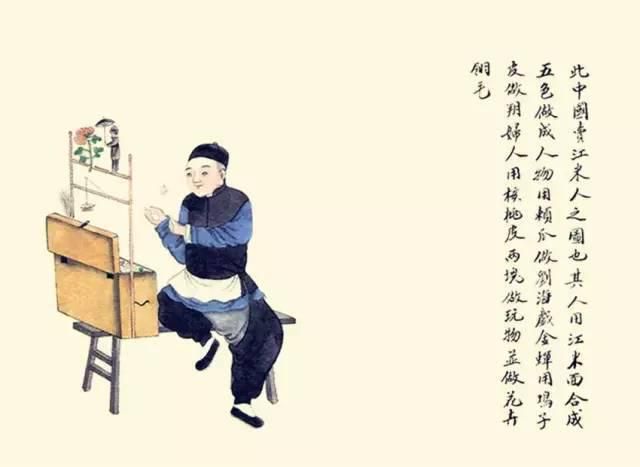 此中國賣江米人之圖也其人用江米面合成
五色做成人物用頼瓜做劉海戲金蟬用子
皮做婦人用核桃皮兩塊做玩物並做花卉
翎毛